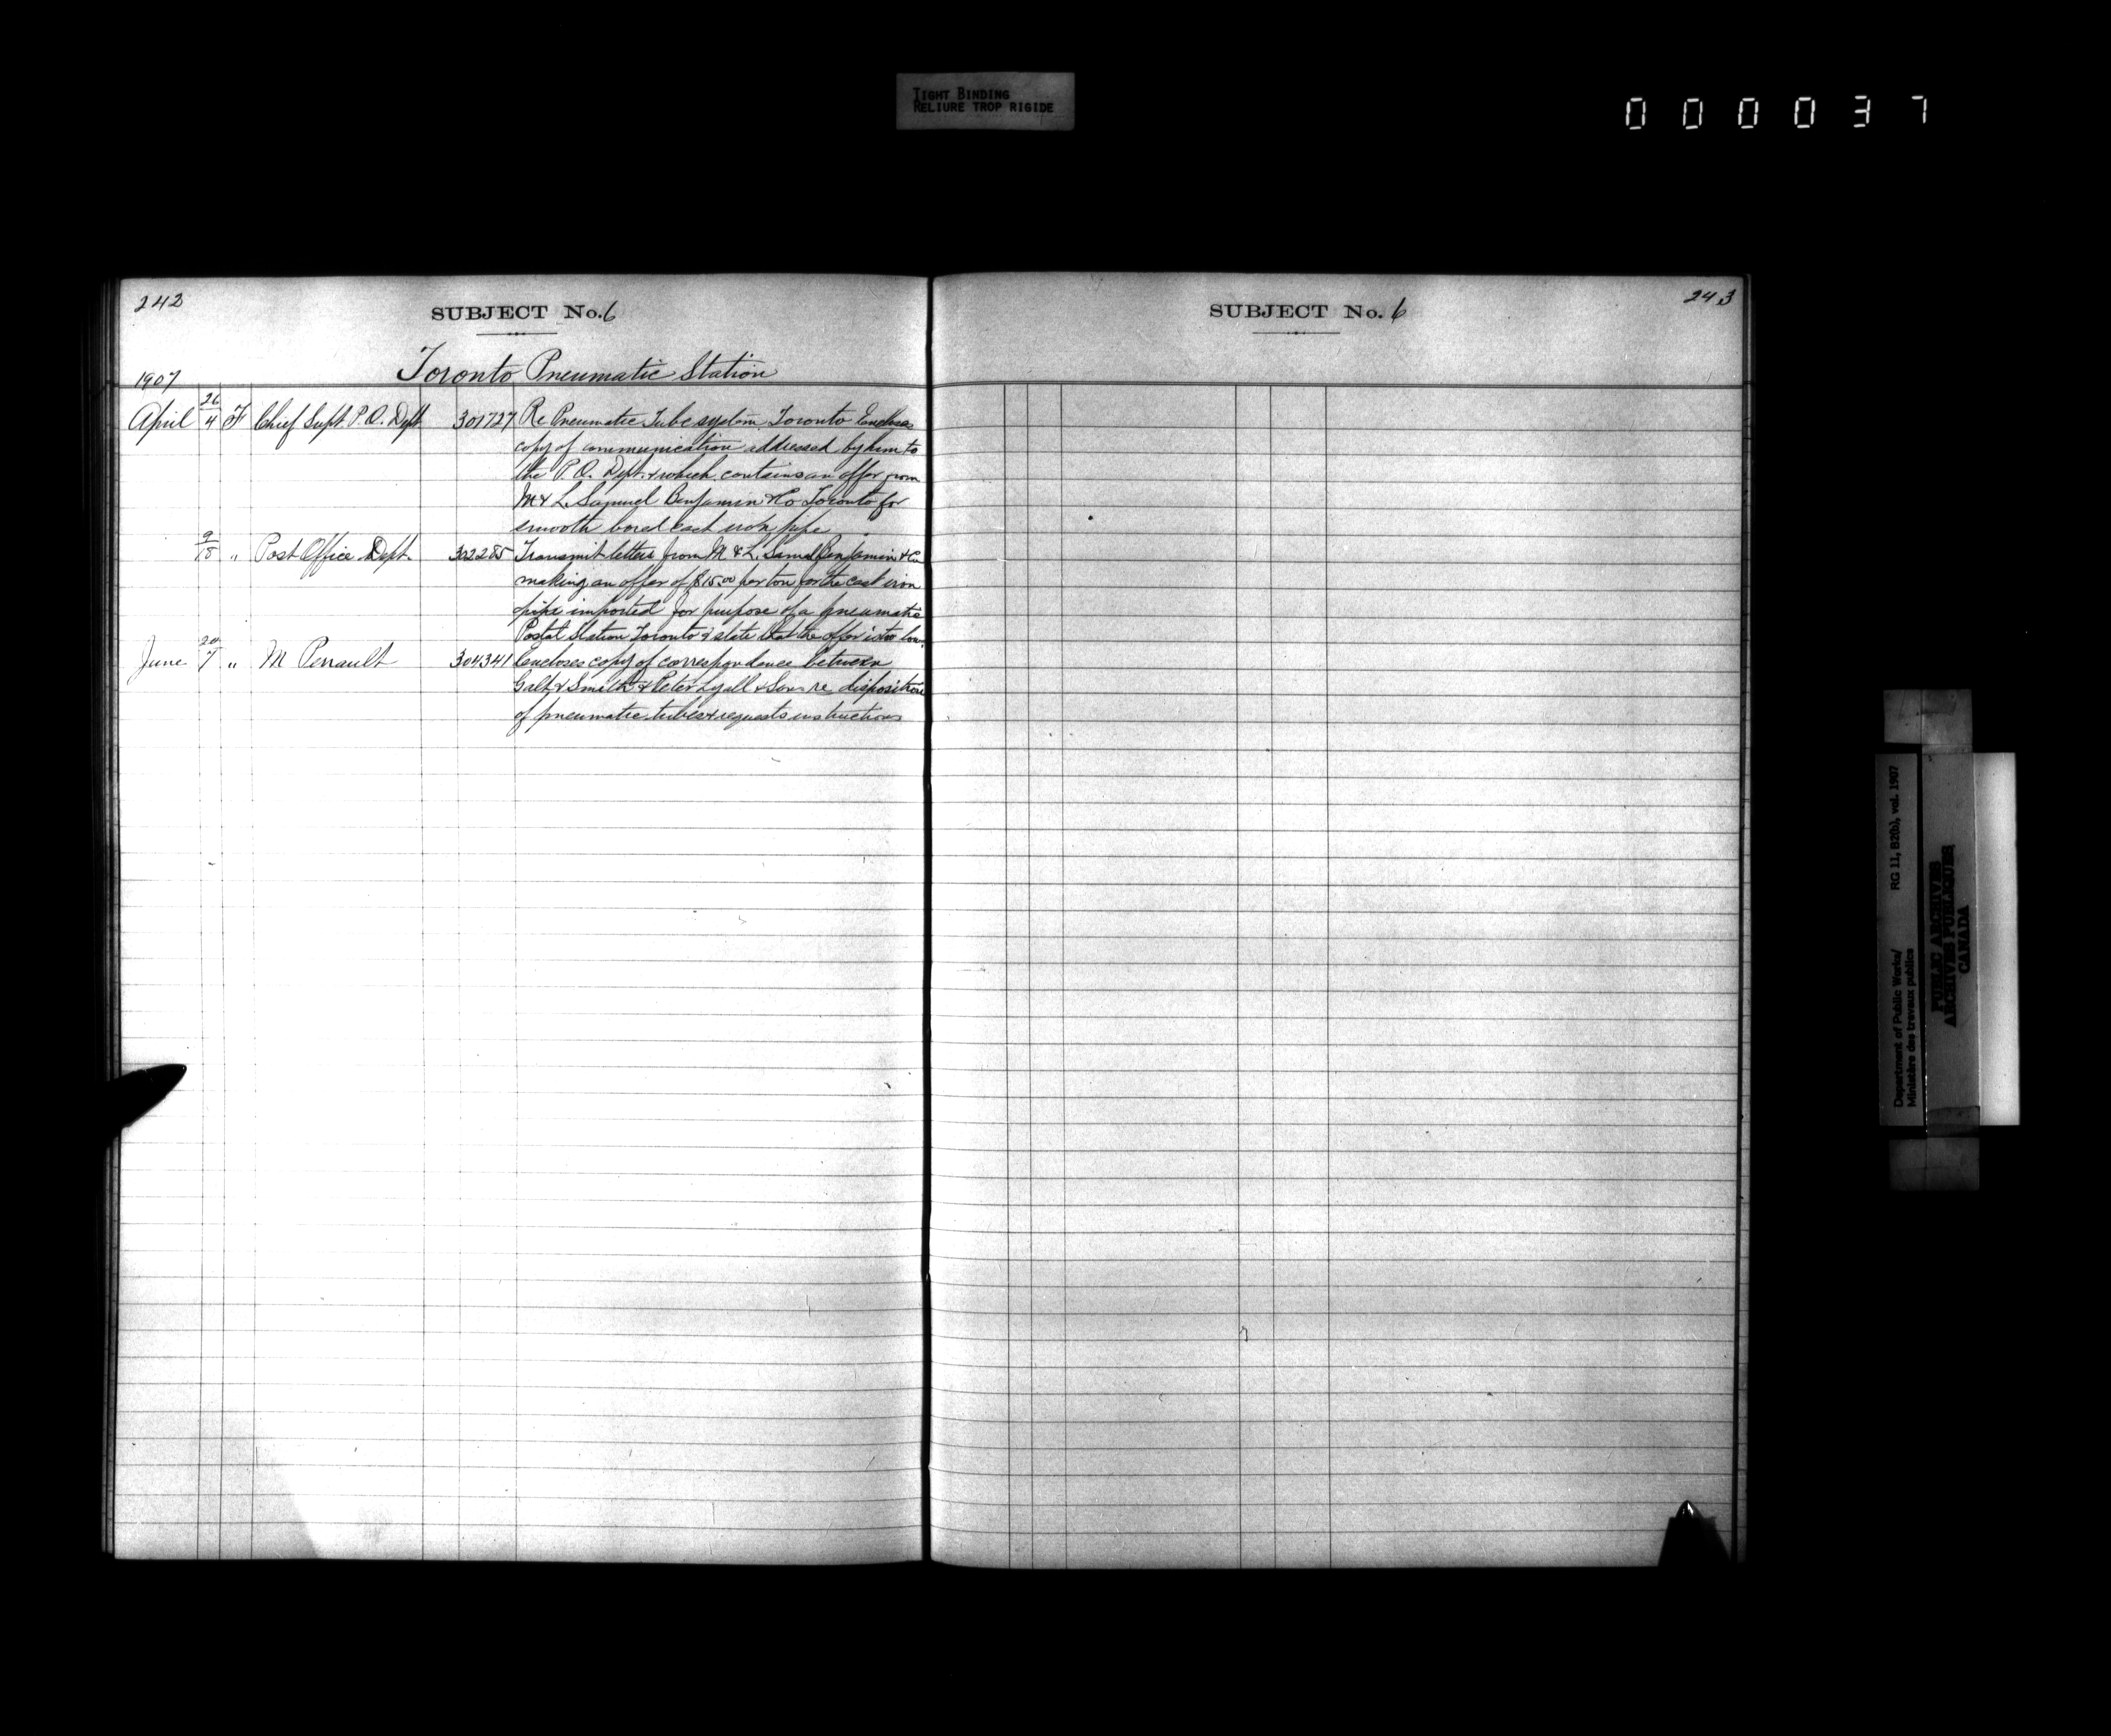 TIGHT BINDING
RELIURE TROP RIGIDE
000037
242
SUBJECT No. 6
Toronto Pneumatic Station
1907
April 26/4 F Chief Supt. P.O. Dept 301727 Re Pneumatic Tube system Toronto Encloses
copy of communication addressed by him to
the P.O. Dept. & which contains an offer from
M & L. Samuel Benjamin & Co Toronto for
smooth bored cast iron pipe
9/ " Post Office Dept. 302285 Transmit letters from M & L. Saml Benjamin & Co
making an offer of $15.00 per ton for the cast iron
pipe imported for purpose of a pneumatic
Postal Station Toronto & state that the offer is too low.
June 20/7 " M Perrault 304341 Encloses copy of correspondence between
Galt & Smith & Peter Lyall & Sons re disposition
of pneumatic tubes & requests instructions
243
SUBJECT No. 6
Department of Public Works/ RG 11, B2(b), vol. 1907
Ministère des travaux publics
PUBLIC ARCHIVES
ARCHIVES PUBLIQUES
CANADA